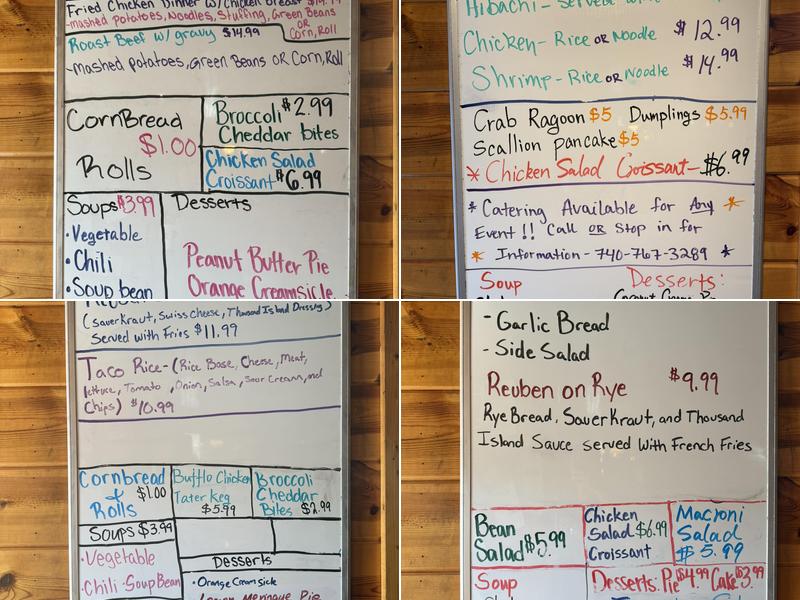 Fried Chicken Dinner w/Chicken Breast $14.99
-mashed potatoes, Noodles, Stuffing, Green Beans
OR
Corn, Roll
Roast Beef w/ gravy $14.99
-mashed potatoes, Green Beans OR Corn, Roll
CornBread
$1.00
Rolls
Broccoli $2.99
Cheddar bites
Chicken Salad
Croissant $6.99
Soups $3.99
• Vegetable
• Chili
• Soup bean
Desserts
Peanut Butter Pie
Orange Creamsicle
Hibachi -
Chicken - Rice OR Noodle $12.99
Shrimp - Rice OR Noodle $14.99
Crab Ragoon $5 Dumplings $5.99
Scallion pancake $5
* Chicken Salad Croissant - $6.99
* Catering Available for Any *
Event!! Call OR Stop in for
* Information - 740-767-3289 *
Soup
Desserts:
(Sauerkraut, Swiss Cheese, Thousand Island Dressing)
Served with Fries $11.99
Taco Rice - (Rice Base, Cheese, Meat,
lettuce, Tomato, Onion, Salsa, Sour Cream, and
Chips) $10.99
Cornbread
& $1.00
Rolls
Bufflo Chicken
Tater Keg
$5.99
Broccoli
Cheddar
Bites $2.99
Soups $3.99
• Vegetable
• Chili • Soup Bean
Desserts
• Orange Creamsicle
Lemon Meringue Pie
- Garlic Bread
- Side Salad
Reuben on Rye $9.99
Rye Bread, Sauerkraut, and Thousand
Island Sauce served With French Fries
Bean
Salad $5.99
Chicken
Salad $6.99
Croissant
Macroni
Salad
$5.99
Soup
Desserts: Pie $4.99 Cake $3.99